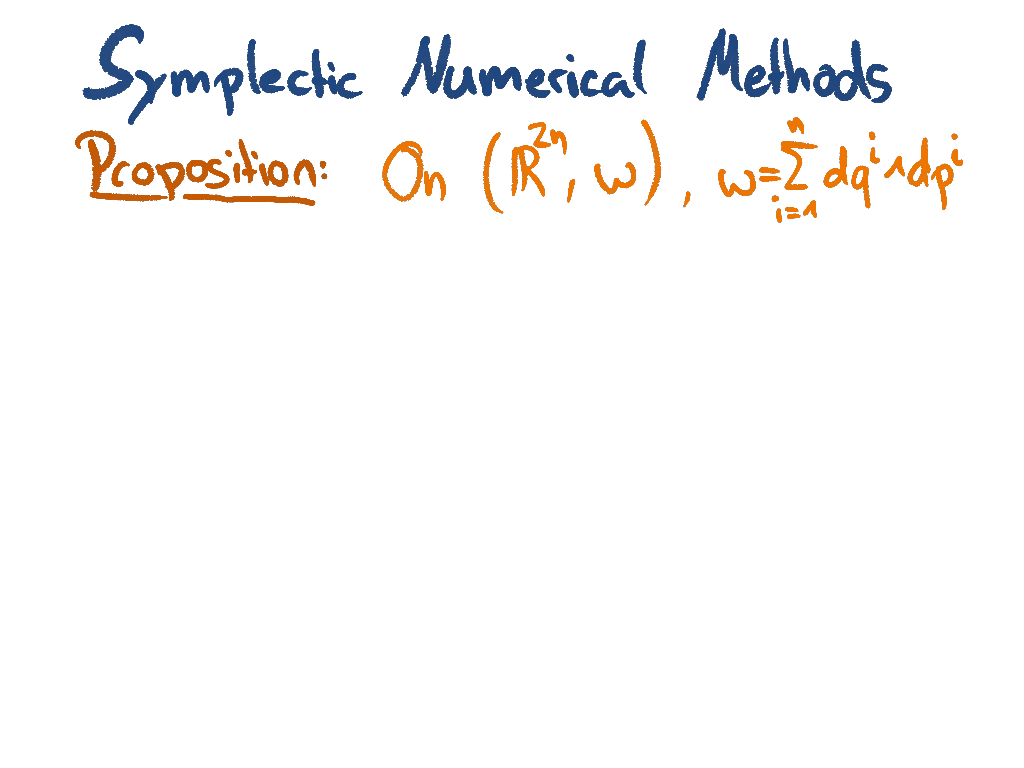 Symplectic Numerical Methods
Proposition: On (ℝ²ⁿ, ω), ω=∑ⁿᵢ₌₁ dqⁱ∧dpⁱ